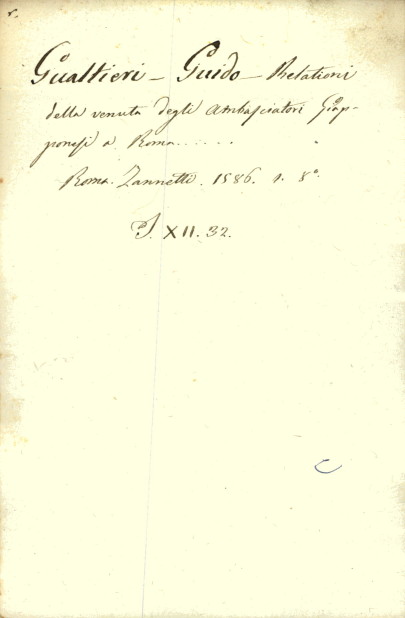 Gualtieri – Guido – Relationi
della venuta degli Ambasciatori Giap-
ponesi a Roma......
Roma. Zannetti. 1586. 8°.
XII. 32.